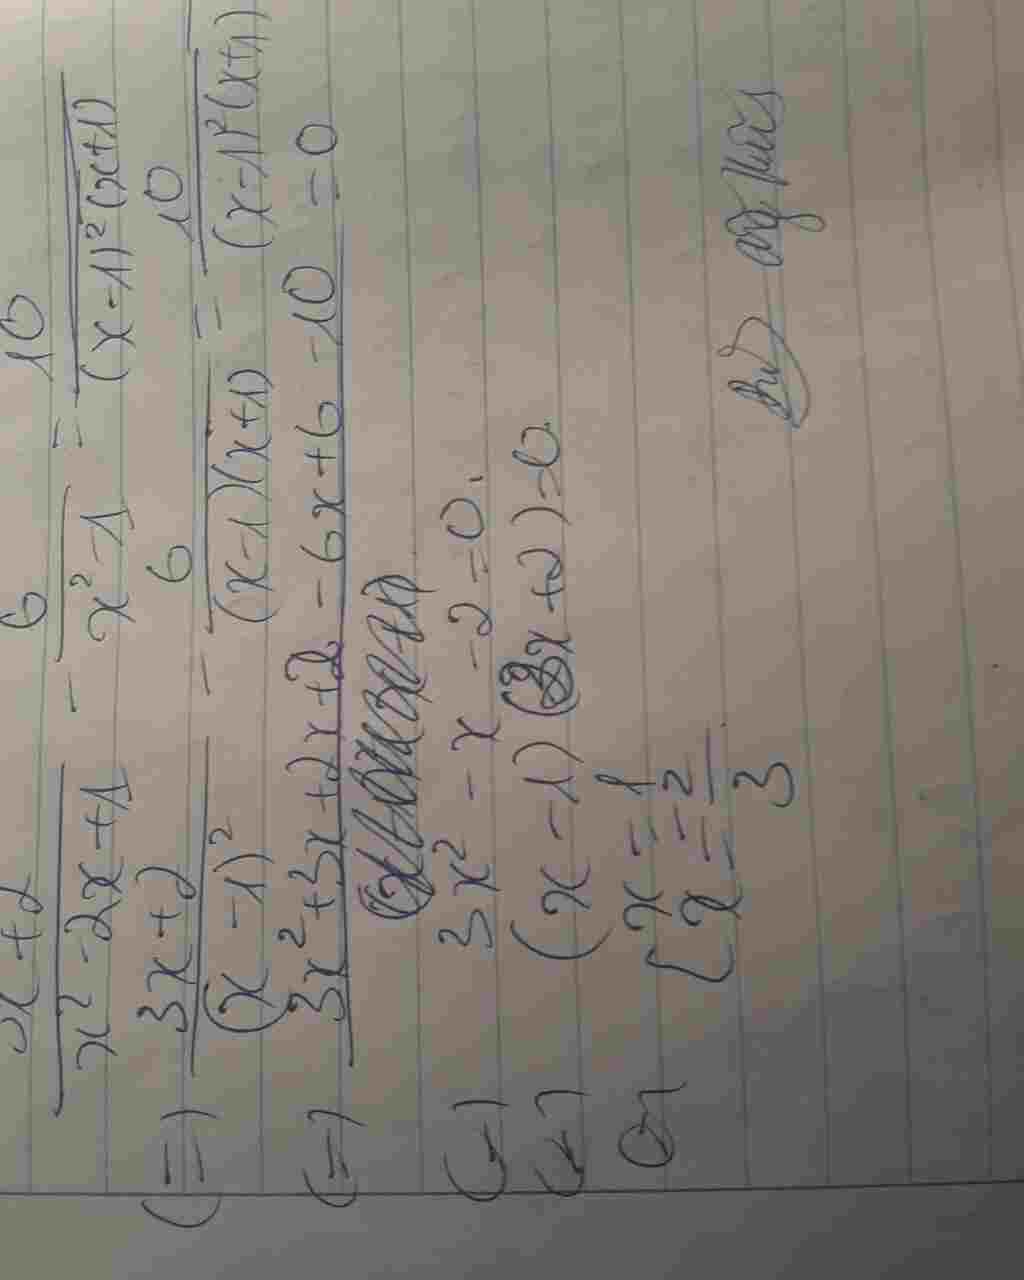 x+2/x²-2x+1 - 6/x²-1 = 10/(x-1)²(x+1)
(=) 3x+2/(x-1)² - 6/(x-1)(x+1) = 10/(x-1)²(x+1)
(=) 3x²+3x+2x+2-6x+6-10=0
(=) 3x²-x-2=0.
(=) (x-1)(3x+2)=0.
(=) [x=1
x=-2/3